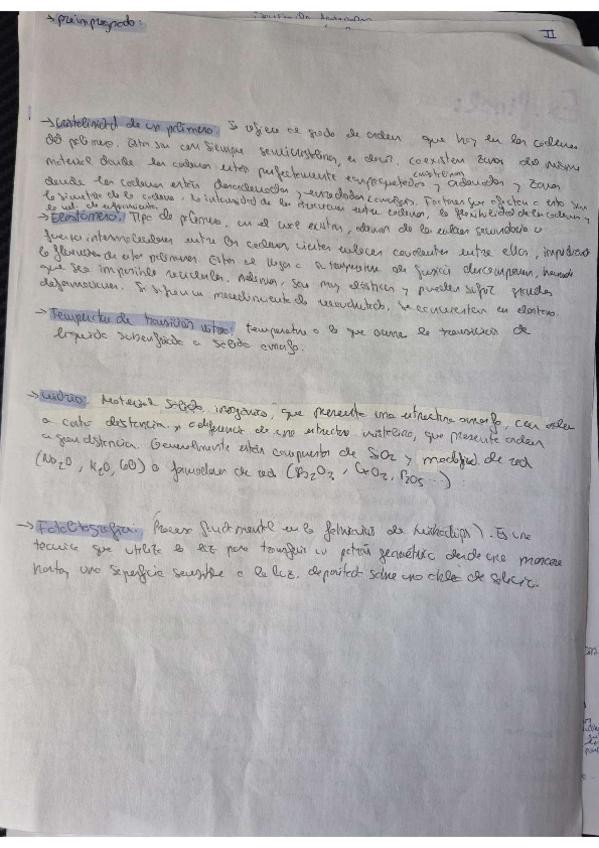 → preimpregnado:
II
→ Cristalinidad de un polímero: Se refiere al grado de orden que hay en las cadenas
del polímero. Estos son casi siempre semicristalinos, es decir, coexisten zonas del mismo
material donde las cadenas están perfectamente empaquetadas y ordenadas y zonas
(cristalinas)
donde las cadenas están desordenadas y enredadas. Factores que afectan a esto son
la simetría de la cadena, la intensidad de las entre cadenas, la flexibilidad de la cadena y
la vel. de enfriamiento.
→ Elastómero: Tipo de polímero, en el que existen, además de los enlaces secundarios o
fuerzas intermoleculares entre las cadenas, ciertos enlaces covalentes entre ellas, impidiendo
la fluencia de estos polímeros. Estos al llegar a temperatura de fusión descomponen, haciendo
que sea imposible reciclarlos. Además, son muy elásticos y pueden sufrir grandes
deformaciones. Si sufren un de se convierten en
→ Temperatura de transición vítrea: temperatura a la que ocurre la transición de
líquido subenfriado a sólido amorfo.
→ vidrio: Material sólido inorgánico, que presenta una estructura amorfa, con orden
a corta distancia, a diferencia de una estructura cristalina, que presenta orden
a gran distancia. Generalmente están compuestos de SiO2 y modific de red
(Na2O, K2O, ) o formadores de red (B2O3, ...)
→ Fotolitografía: Proceso fundamental en la fabricación de microchips). Es una
técnica que utiliza la luz para transferir un patrón geométrico desde una máscara
hasta una superficie sensible a la luz, depositada sobre una oblea de silicio.